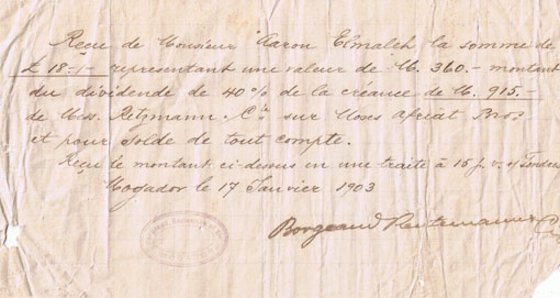 Reçu de Monsieur Aaron Elmaleh la somme de
£ 18.-/- représentant une valeur de M. 360.- montant
du dividende de 40% de la créance de M. 915.-
de Mess. Retzmann & Cie sur Moses Afriat Bros
et pour solde de tout compte.
Reçu le montant ci-dessus en une traite à 15 j. v. s/ Londres
Mogador le 17 Janvier 1903
Borgeaud Reutemann